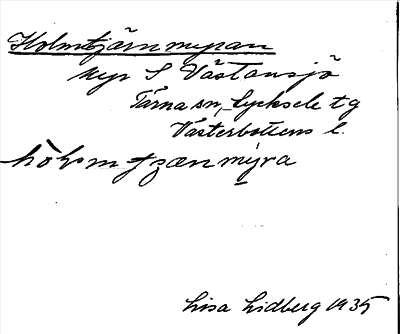 Holmtjärnmyran
Myr S Västansjö
Tärna sn, Lycksele tg
Västerbottens l.
hòlmtjæ̀nmýra
Lisa Lidberg 1935